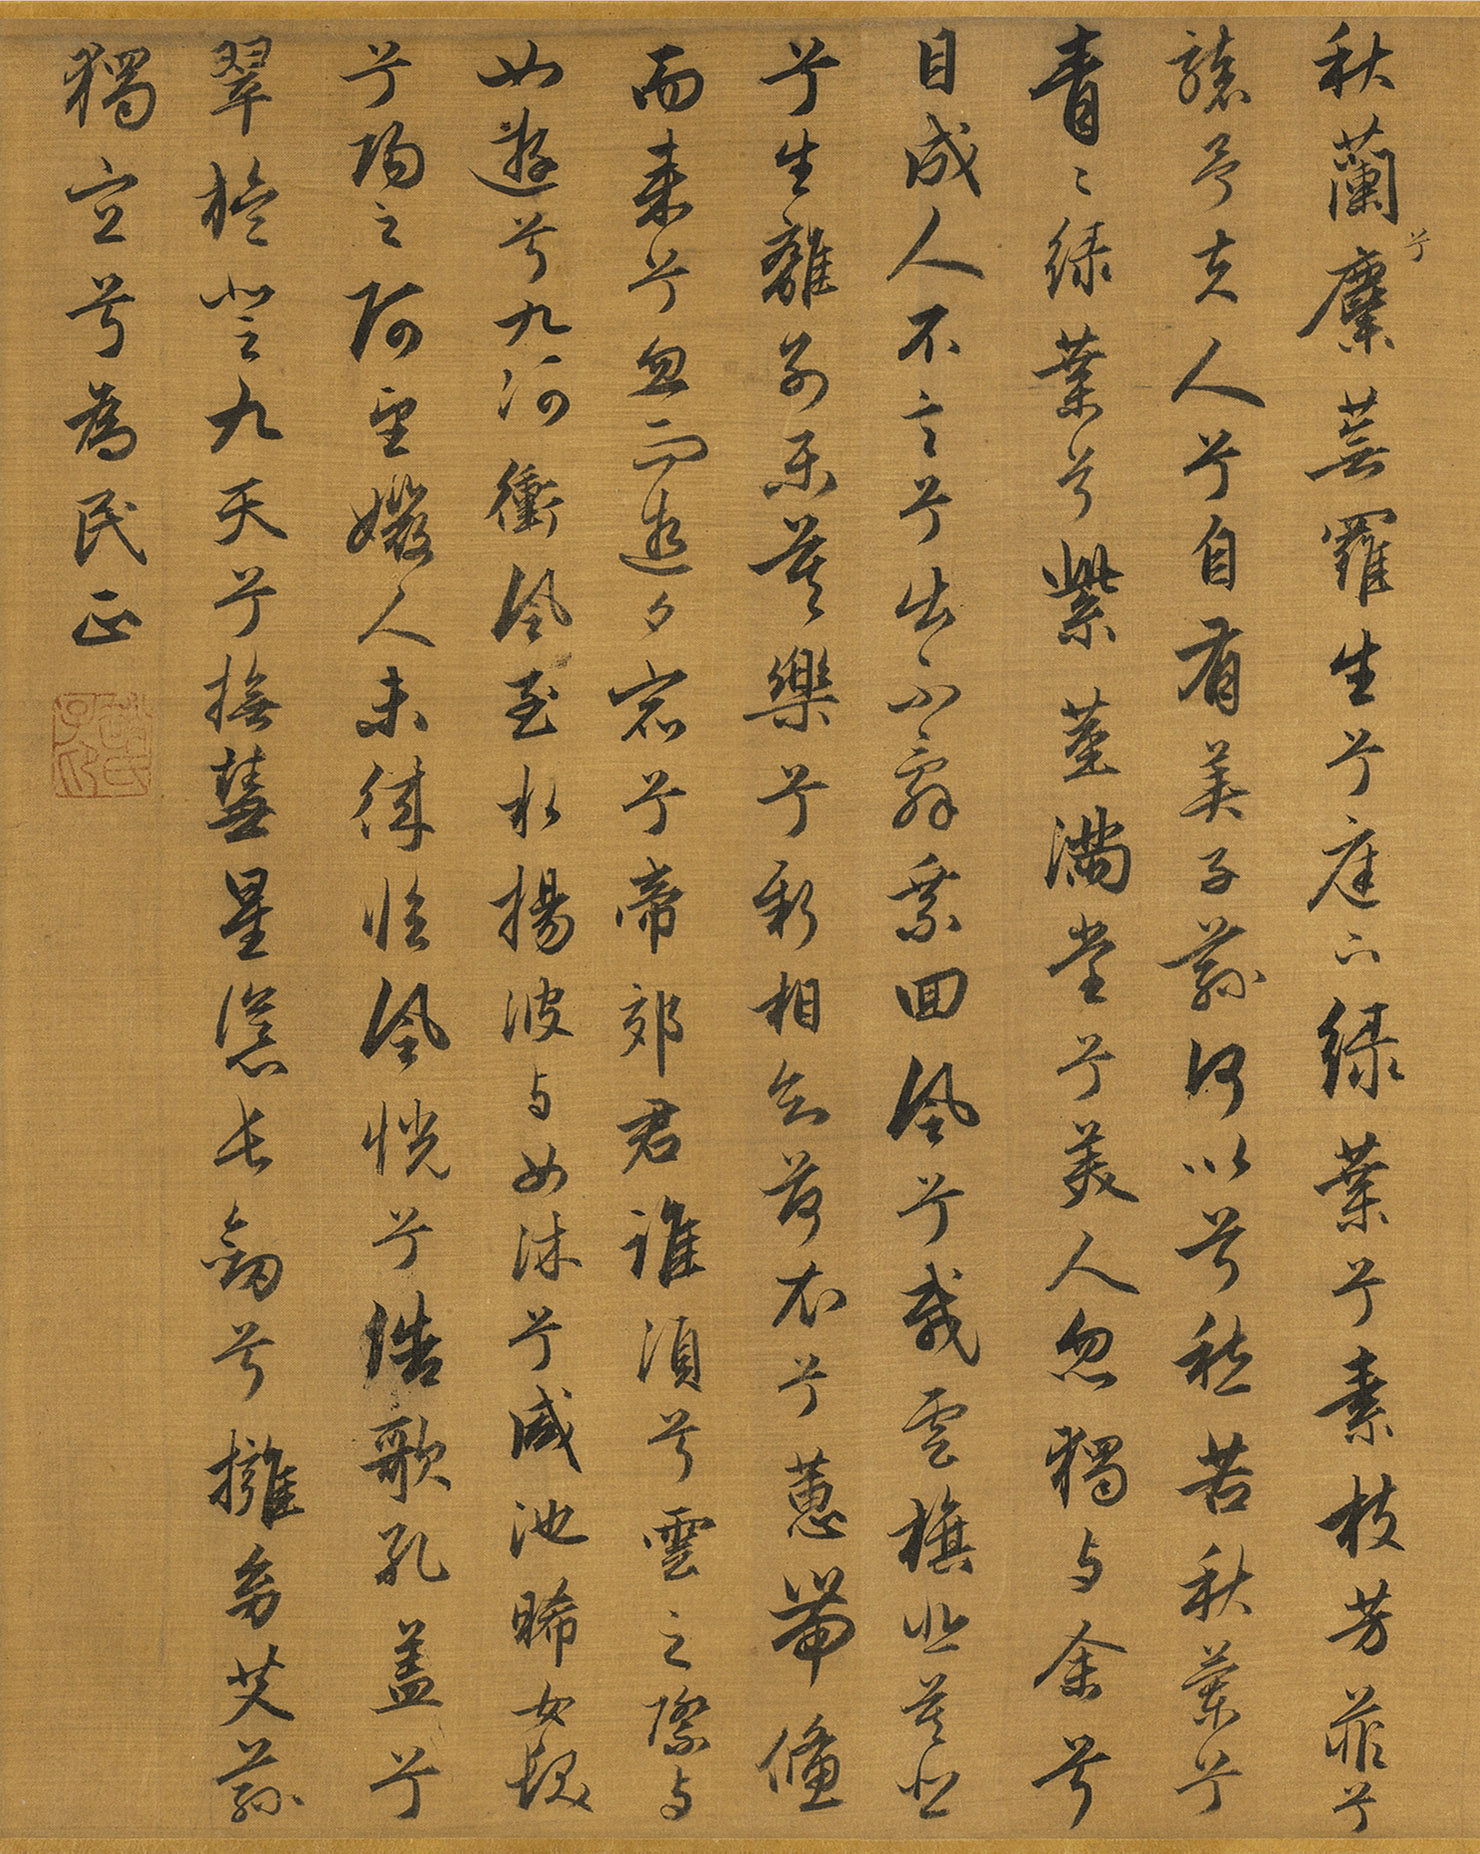 秋蘭兮麋蕪羅生兮庭下綠葉兮素枝芳菲兮
襲予夫人兮自有美子蓀何以兮愁苦秋蘭兮
青〻綠葉兮紫莖滿堂兮美人忽獨与余兮
目成人不言兮出不辭乘回風兮載雲旗悲莫悲
兮生離別樂莫樂兮新相知荷衣兮蕙帶儵
而来兮忽而逝夕宿兮帝郊君誰須兮雲之際与
女遊兮九河衝風至水揚波与女沐兮咸池晞女髮
兮陽之阿望媺人未徠臨風恍兮浩歌孔蓋兮
翠旍登九天兮撫慧星慫長劍兮擁幼艾蓀
獨宜兮為民正
趙氏子昂